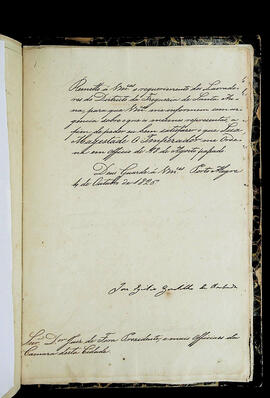 Remetto á Vm.ces o requerimento dos Lavrado
res do Districto da Freguezia de Santa An
na, para que Vm.ces me informem com ur
gencia sobre o que o mesmo representa, a
fim de poder eu bem satisfazer o que Sua
Magestade O Imperador me Orde
nou em officio de de Agosto passado.
Deus Guarde á Vm.ces Porto Alegre
4 de Outubro de 1826
Jose Gordilho de Barbuda
Snr.es Dor Juiz de Fora Prezidente, e mais Officiaes da
Camara desta Cidade.